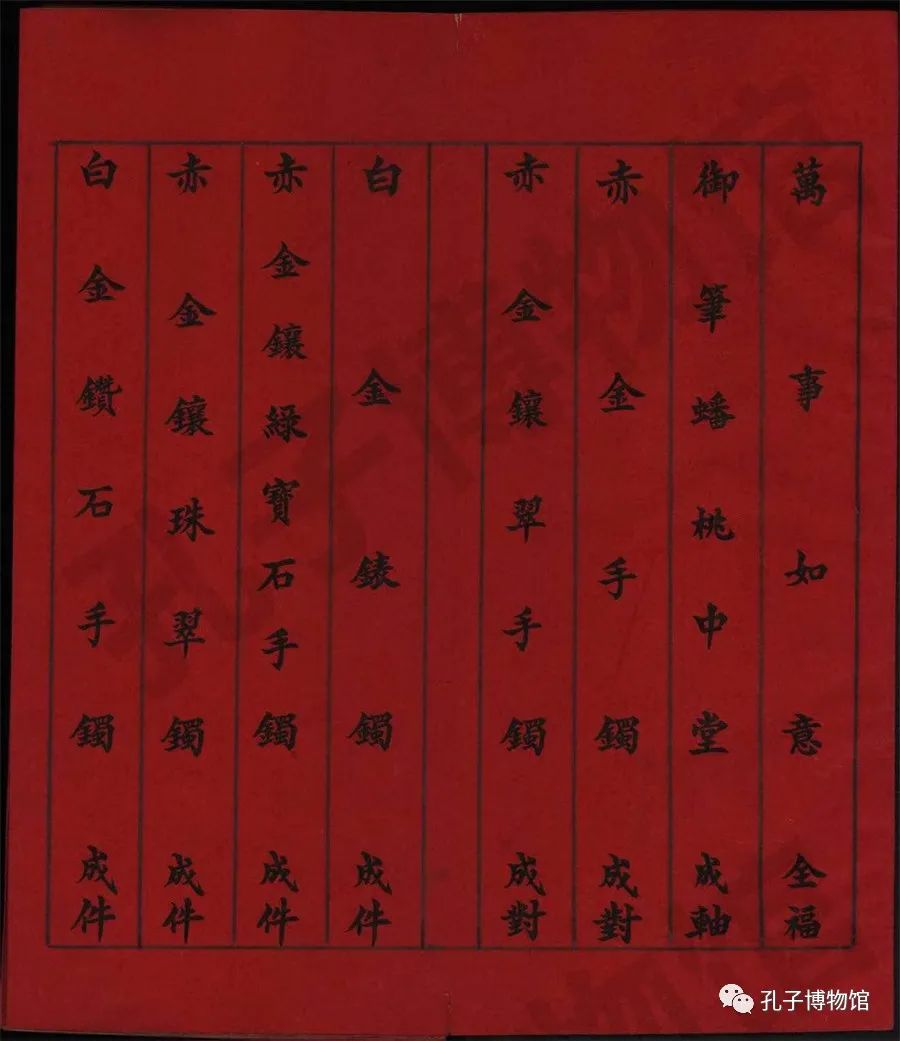 萬事如意全福
御筆蟠桃中堂成軸
赤金手鐲成對
赤金鑲翠手鐲成對
白金錶鐲成件
赤金鑲綠寶石手鐲成件
赤金鑲珠翠鐲成件
白金鑽石手鐲成件
孔子博物馆
孔子博物馆